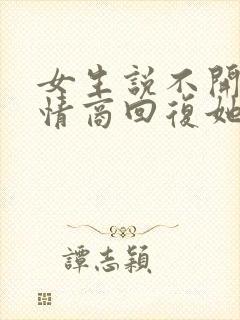 女生説不開
情商回復她
譚志穎